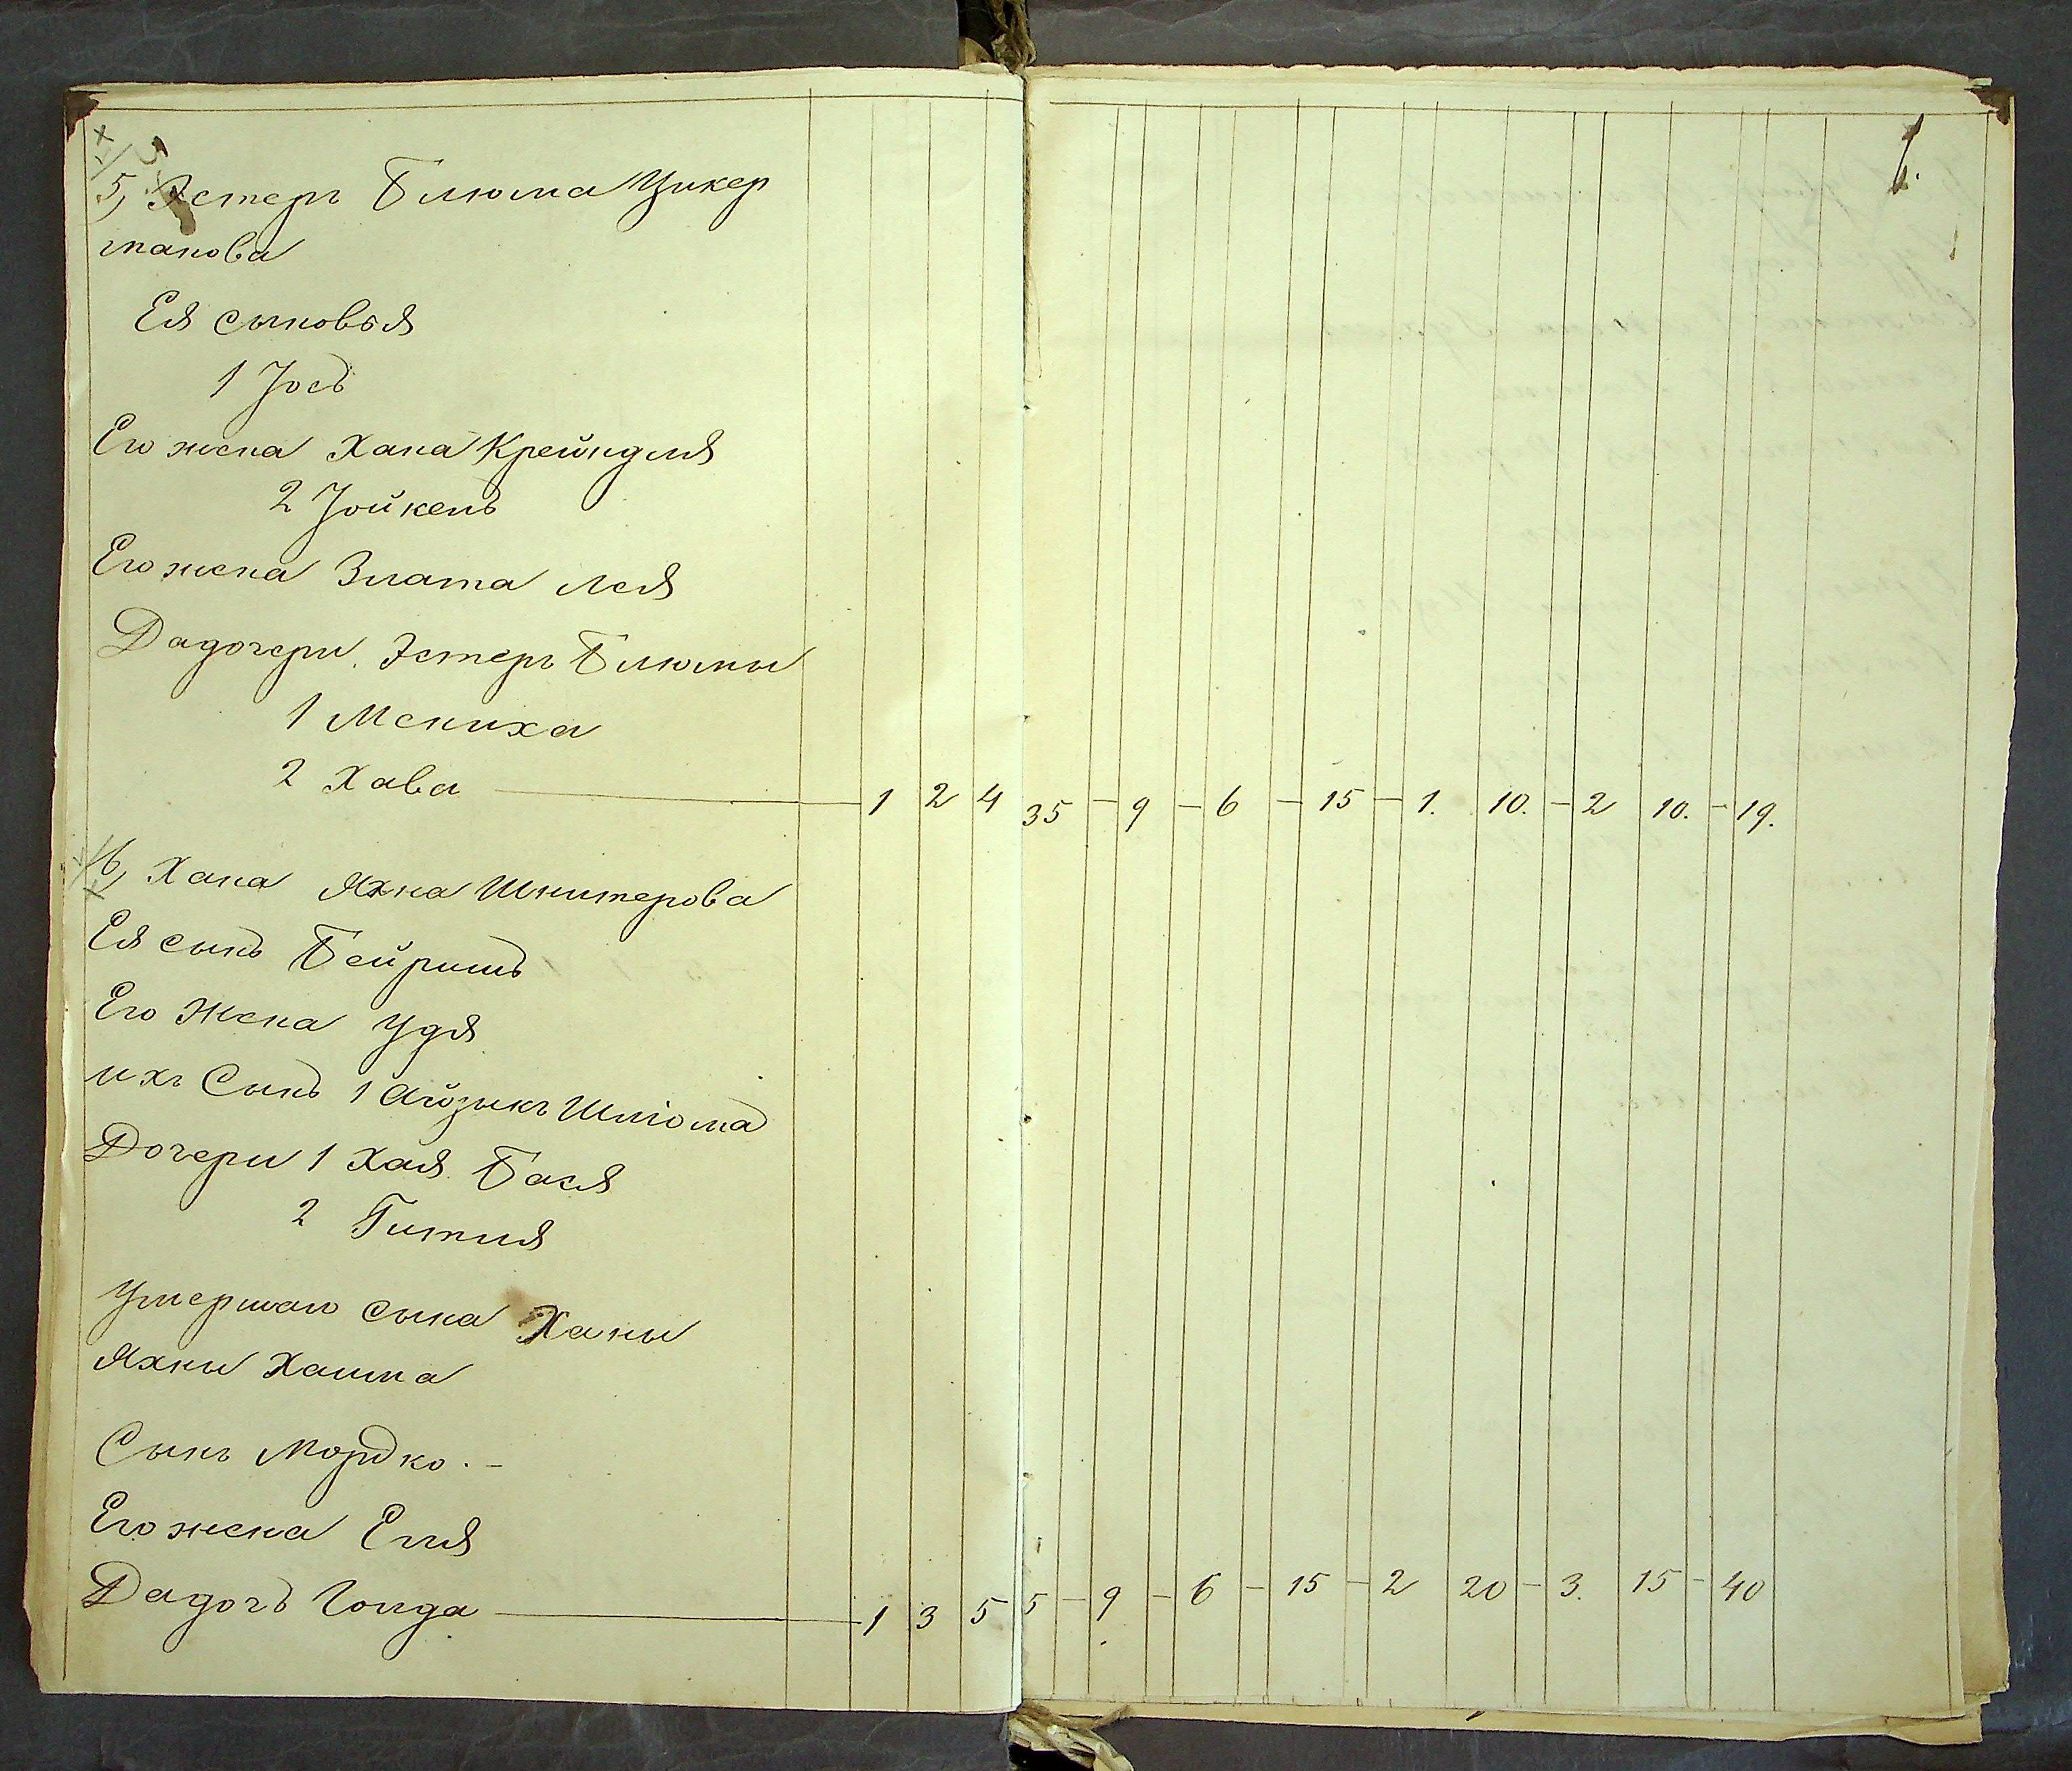 5, Эстеръ Блюма Цукер
манова
Ея сыновья
1 Іосъ
Его жена Хана Крейндля
2 Іойкель
Его жена Злата Лея
Да дочери Эстеръ Блюмы
1 Мениха
2 Хава — 1 2 4 35 — 9 — 6 — 15 — 1. 10. — 2 10. — 19.
6, Хана Яхна Шнитерова
Ея сынъ Бейришъ
Его Жена Удя
ихъ Сынъ 1 Айзыкъ Шліома
Дочери 1 Хая Бася
2 Гитля
Умершаго сына Ханы
Яхны Хаима
Сынъ Мордко. —
Его жена Еля
Да дочь Голда — 1 3 5 5 — 9 — 6 — 15 — 2 20 — 3. 15 — 40
6.